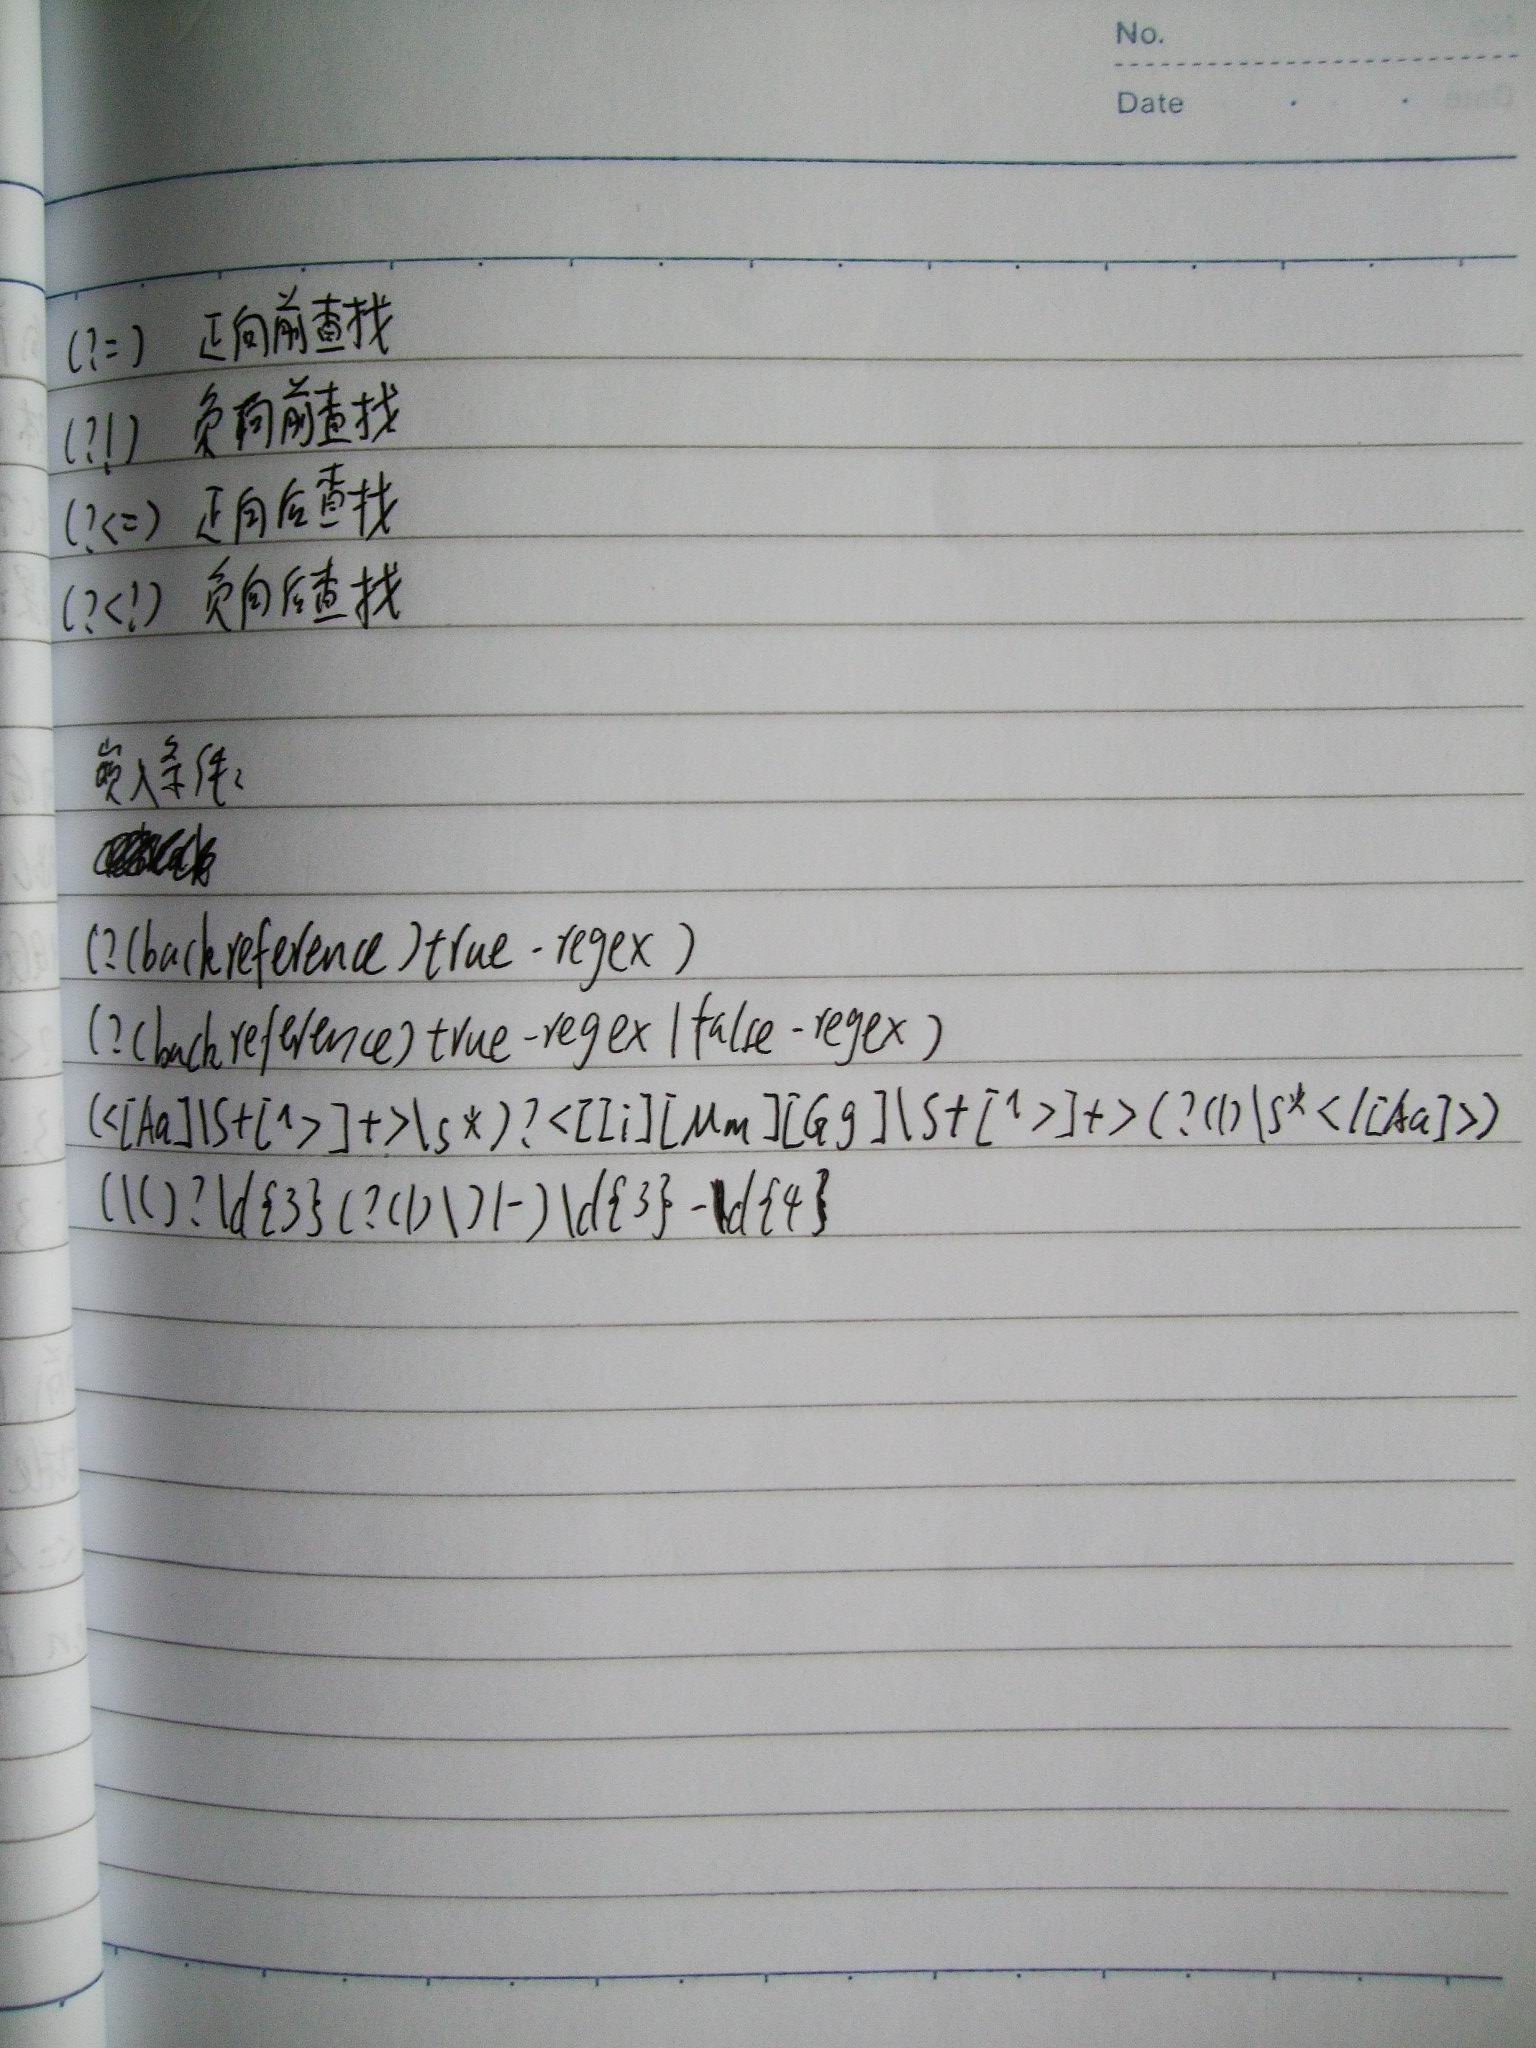 No.
Date
(?=) 正向前查找
(?!) 负向前查找
(?<=) 正向后查找
(?<!) 负向后查找
嵌入条件:
(?(backreference)true-regex)
(?(backreference)true-regex|false-regex)
(<[Aa]\s+[^>]+>\s*)?<[Ii][Mm][Gg]\s+[^>]+>(?(1)\s*</[Aa]>)
(\()?\d{3}(?(1)\)|-)\d{3}-\d{4}